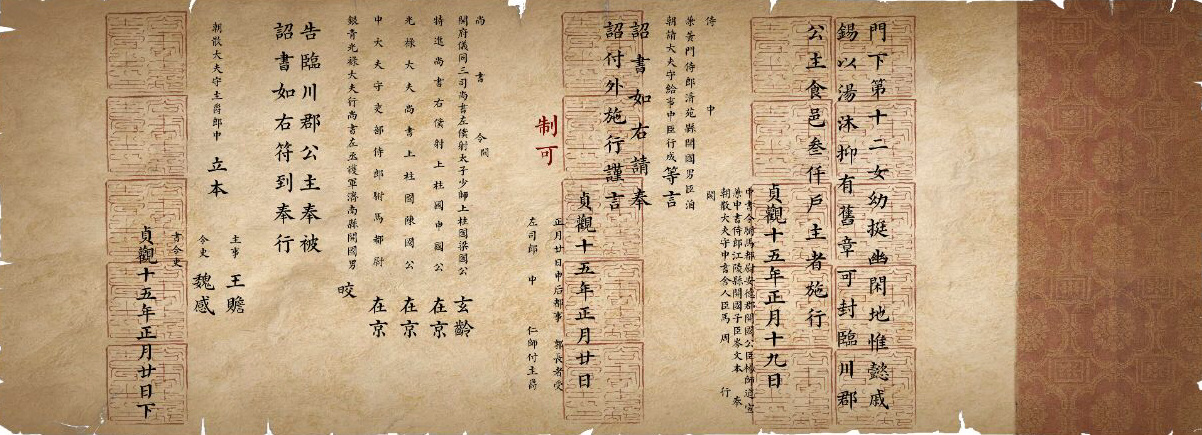 門下第十二女幼挺幽閑地惟懿戚
錫以湯沐抑有舊章可封臨川郡
公主食邑叁仟戶主者施行
貞觀十五年正月十九日
中書令駙馬都尉安德郡開國公臣楊師道宣
兼中書侍郎江陵縣開國子臣岑文本 奉
朝散大夫守中書舍人臣馬周 行
侍中 闕
兼黃門侍郎清苑縣開國男臣洎
朝請大夫守給事中臣行成等言
詔書如右請奉
詔付外施行謹言
貞觀十五年正月廿日
制可
正月廿日申后都事 郭長者受
左司郎中 仁師付主爵
尚書令闕
開府儀同三司尚書左僕射太子少師上柱國梁國公 玄齡
特進尚書右僕射上柱國申國公 在京
光祿大夫尚書上柱國陳國公 在京
中大夫守吏部侍郎駙馬都尉 在京
銀青光祿大夫行尚書左丞護軍濟南縣開國男 咬
告臨川郡公主奉被
詔書如右符到奉行
主事 王贍
朝散大夫守主爵郎中 立本
令史 魏感
書令史
貞觀十五年正月廿日下